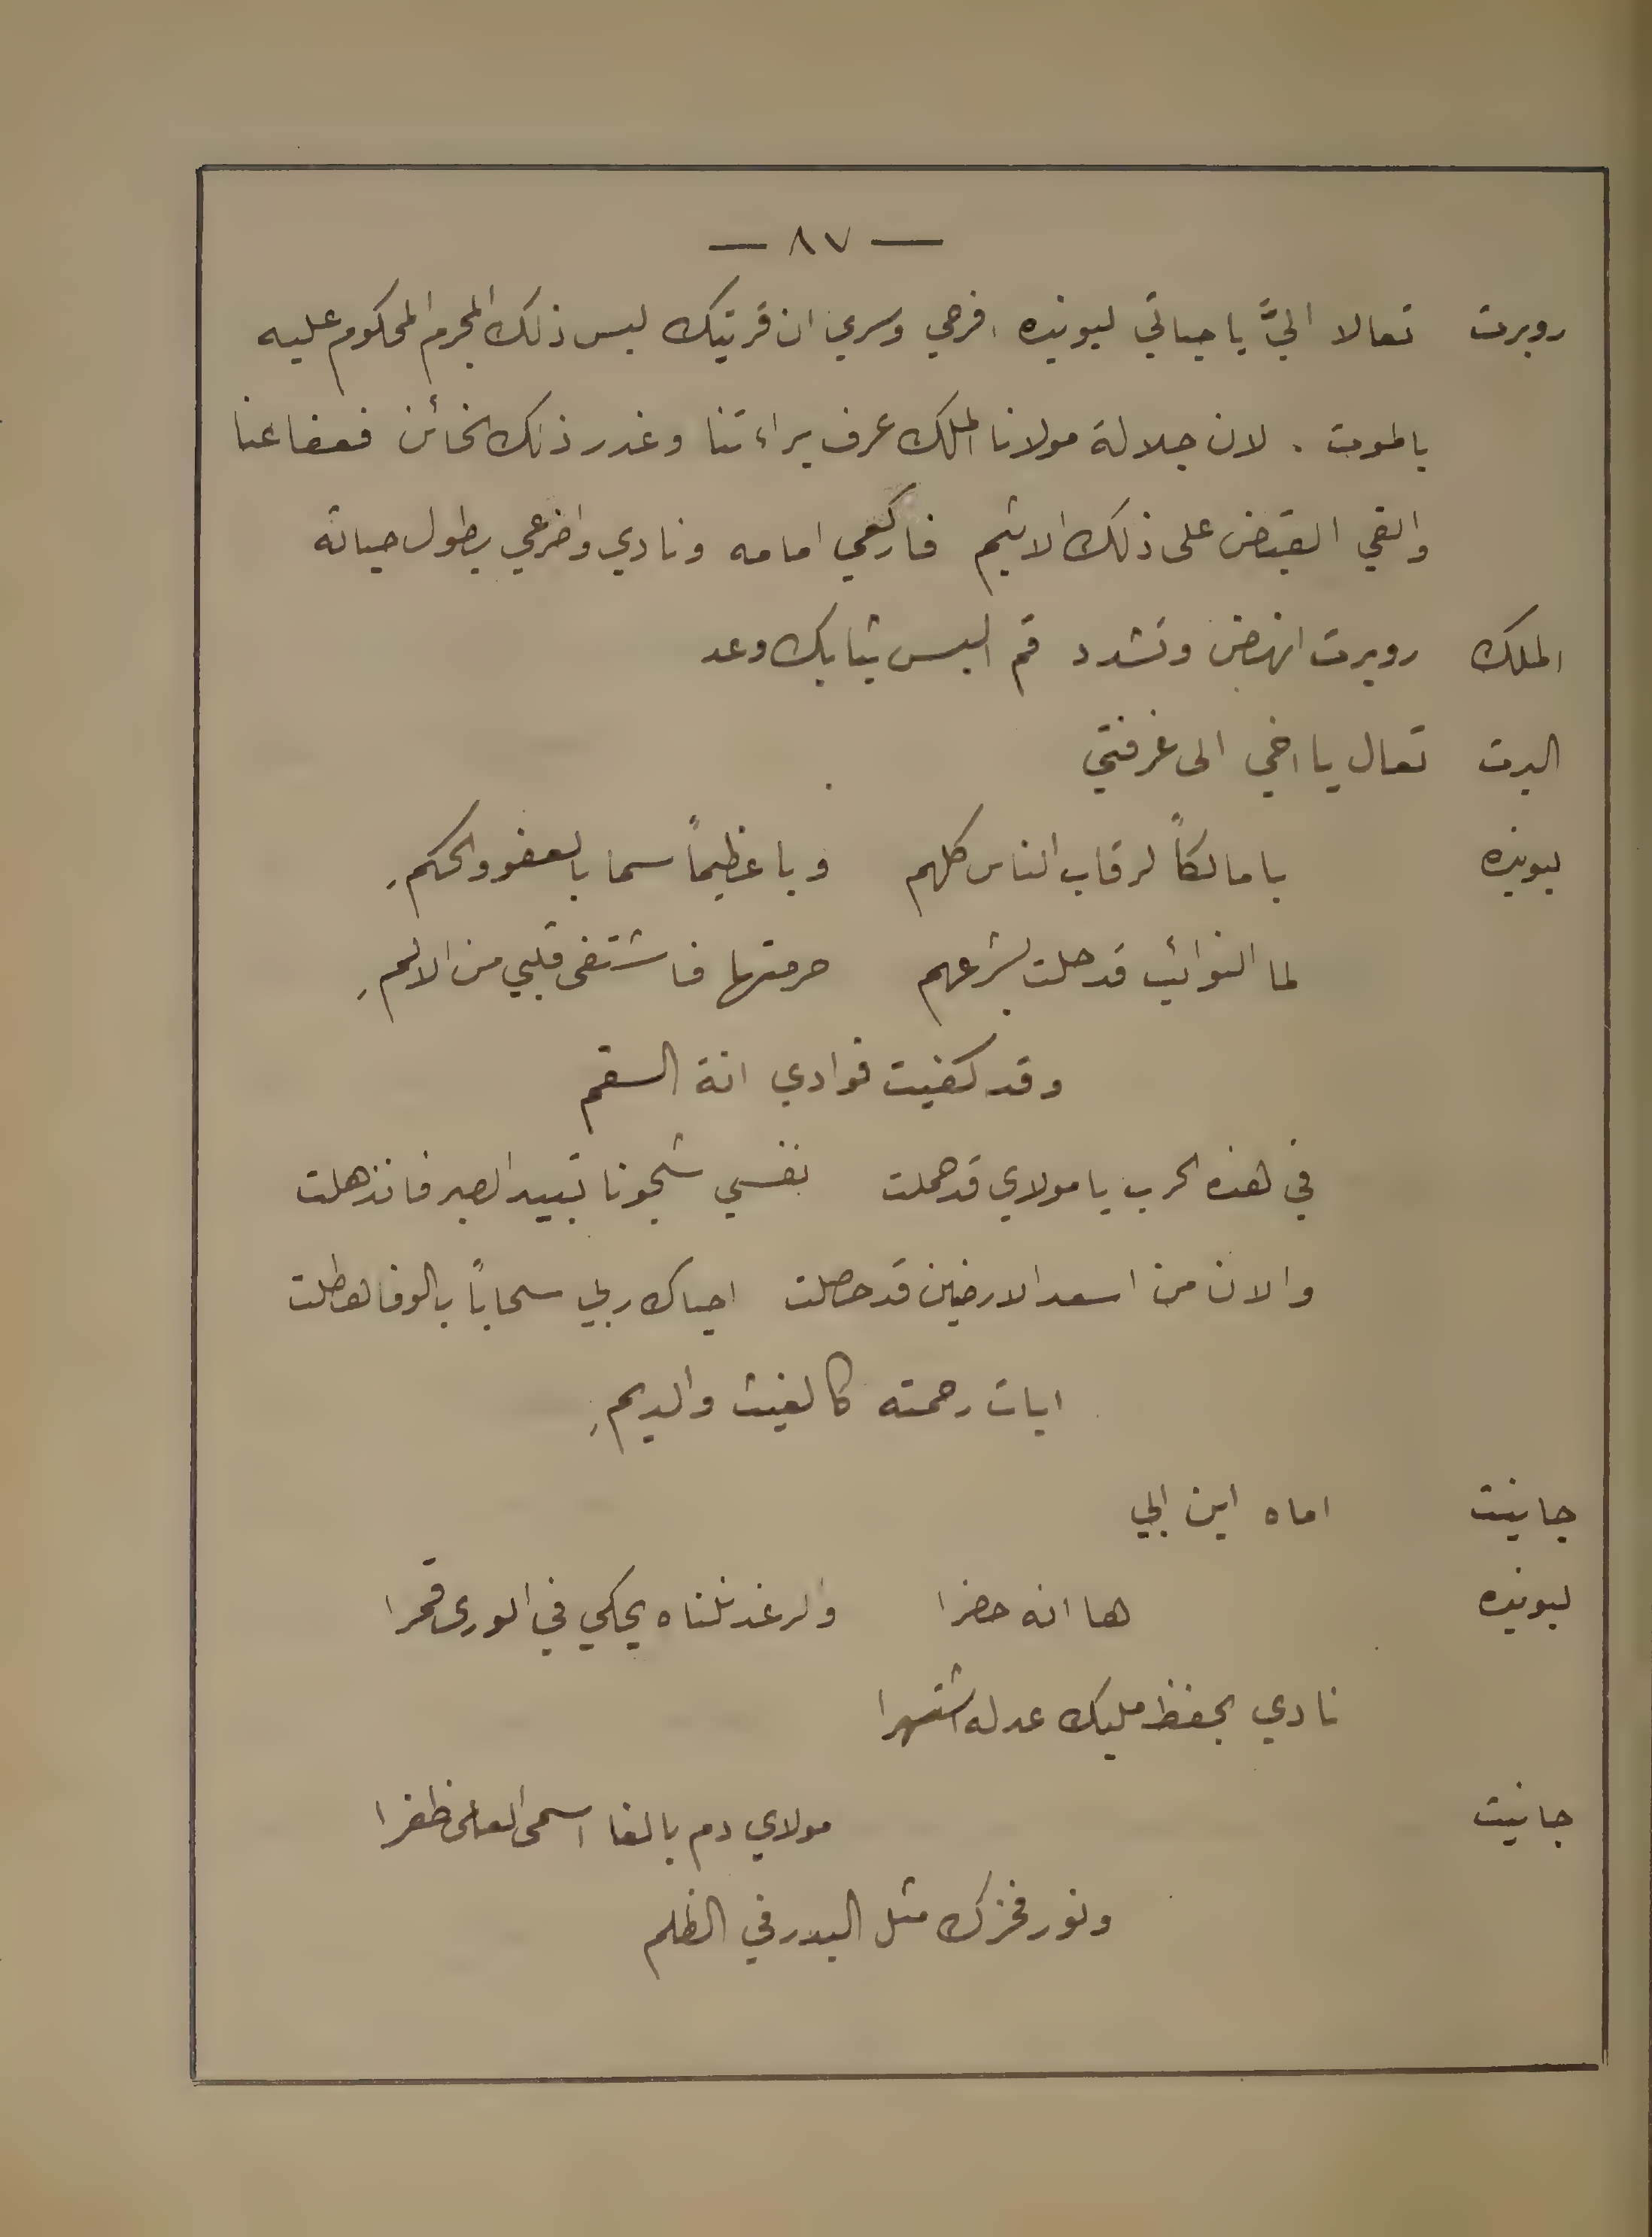 — ٨٧ —
روبرت تعالا اليَّ يا حياتي ليونيده افرحي وسري ان قرينك ليس ذلك المجرم المحكوم عليه
بالموت . لان جلالة مولانا الملك عرف براءتنا وغدر ذلك الخائن فعفا عنا
والقي القبض على ذلك الاثيم فاركعي امامه ونادي واضرعي بطول حياته
الملك روبرت انهض وتشدد قم البس ثيابك وعد
البرت تعال يا اخي الى غرفتي
ليونيده يا مالكاً لرقاب الناس كلهم ويا عظيماً سما بالعفو والحكمِ
لما النوائب قد حلت بشرعهم حرمتها فاشتفى قلبي من الالمِ
وقد كفيت فوادي انة السقم
في هذه الحرب يا مولاي قد حملت نفسي شجونا تبيد الصبر فانذهلت
والان من اسعد الارضين قد حصلت احياك ربي سحاباً بالوفا هطلت
ايات رحمته كالغيث والديمِ
جانيت اماه اين ابي
ليونيده ها انه حضرا والرغد نلناه يحكي في الورى قمرا
نادي بحفظ مليك عدله اشتهرا
جانيت مولاي دم بالغا اسمى العلى ظفرا
ونور فخرك مثل البدر في الظلم